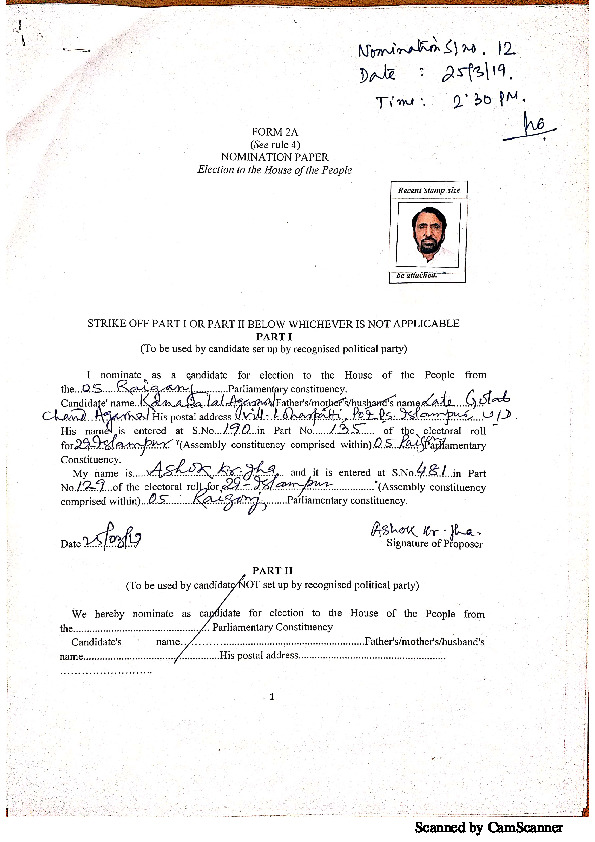 Nomination Sl no. 12
Date : 25/3/19.
Time: 2:30 PM.
FORM 2A
(See rule 4)
NOMINATION PAPER
Election to the House of the People
Recent stamp size
be attached.
STRIKE OFF PART I OR PART II BELOW WHICHEVER IS NOT APPLICABLE
PART I
(To be used by candidate set up by recognised political party)
I nominate as a candidate for election to the House of the People from
the...05 Raiganj...........Parliamentary constituency.
Candidate' name...Kanaialal Agarwal Father's/mother's/husband's name Late Gulab
Chand Agarwal His postal address Vill- Po+Ps. Islampur U/D.
His name is entered at S.No...190...in Part No......135..... of the electoral roll
for 29 Islampur *(Assembly constituency comprised within) 05 Parliamentary
Constituency.
My name is.....Ashok Kr. Jha..... and it is entered at S.No.481...in Part
No.129...of the electoral roll for 29-Islampur............*(Assembly constituency
comprised within)..05.....Raiganj.......Parliamentary constituency.
Date 25/03/19
Ashok Kr. Jha.
Signature of Proposer
PART II
(To be used by candidate NOT set up by recognised political party)
We hereby nominate as candidate for election to the House of the People from
the............................................. Parliamentary Constituency
Candidate's name...............................................................Father's/mother's/husband's
name.............................................His postal address.................................................
...........................
1
Scanned by CamScanner